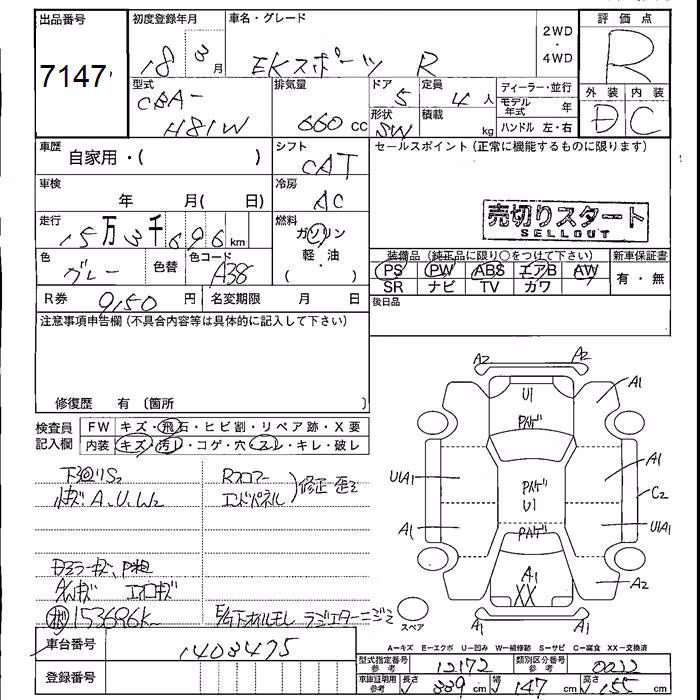 出品番号
7147
初度登録年月
18 3月
車名・グレード
EKスポーツ R
2WD
・
4WD
評価点
R
型式
CBA-
H81W
排気量
660 cc
ドア
5
定員
4人
形状
SW
積載
kg
ディーラー・並行
モデル年式 年
ハンドル 左・右
外装 内装
D C
車歴
自家用・( )
シフト
CAT
セールスポイント(正常に機能するものに限ります)
車検
年 月( 日)
冷房
AC
売切りスタート
SELLOUT
走行
15万3千696km
燃料
ガソリン
軽・油
( )
色
グレー
色替
色コード
A38
装備品(純正品に限り○をつけて下さい)
新車保証書
PS PW ABS エアB AW
SR ナビ TV カワ
有・無
R券
9150円
名変期限 月 日
後日品
注意事項申告欄(不具合内容等は具体的に記入して下さい)
修復歴 有 (箇所 )
検査員
記入欄
FW キズ・飛石・ヒビ割・リペア跡・X要
内装 キズ・汚レ・コゲ・穴・スレ・キレ・破レ
下廻りS2
Rフロアー
エンドパネル
)修正 歪ミ
A.U.W2
ダッシュキズ
153696K
ラジエターニジミ
A2 A2
U1
A1
Pハゲ
U1A1
Pハゲ
U1
A1
C2
A1
Pハゲ
U1A1
A1
XX
A2
A1 A1
スペア
車台番号
1403475
登録番号
A-キズ E-エクボ U-凹み W-補修跡 S-サビ C-腐食 XX-交換済
型式指定番号
参考
12172
類別区分番号
参考
0022
車庫証明用
参考
長さ 339cm
幅 147cm
高さ 155cm